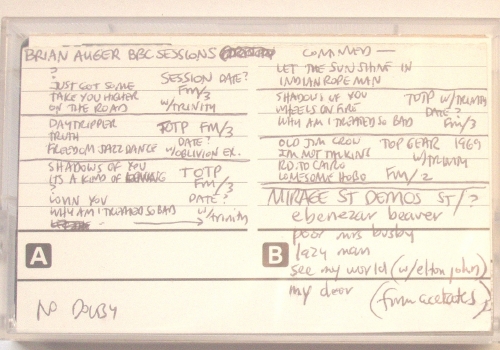 BRIAN AUGER BBC SESSIONS
?
JUST GOT SOME
TAKE YOU HIGHER
ON THE ROAD
SESSION DATE?
FM/3
W/TRINITY
DAYTRIPPER
TRUTH
FREEDOM JAZZ DANCE
TOTP FM/3
DATE?
W/OBLIVION EX.
SHADOWS OF YOU
IT'S A KIND OF
?
LOVIN YOU
WHY AM I TREATED SO BAD
TOTP
FM/3
DATE?
W/trinity
A
NO DOLBY
LET THE SUNSHINE IN
INDIAN ROPE MAN
SHADOWS OF YOU
WHEELS ON FIRE
WHY AM I TREATED SO BAD
TOTP W/TRINITY
DATE?
FM/3
OLD JIM CROW
I'M NOT TALKING
RD. TO CAIRO
LONESOME HOBO
TOP GEAR 1969
W/TRINITY
FM/2
MIRAGE ST DEMOS ST/?
ebenezer beaver
poor mrs busby
lazy man
see my world (w/elton john)
my door
(from acetates)
B